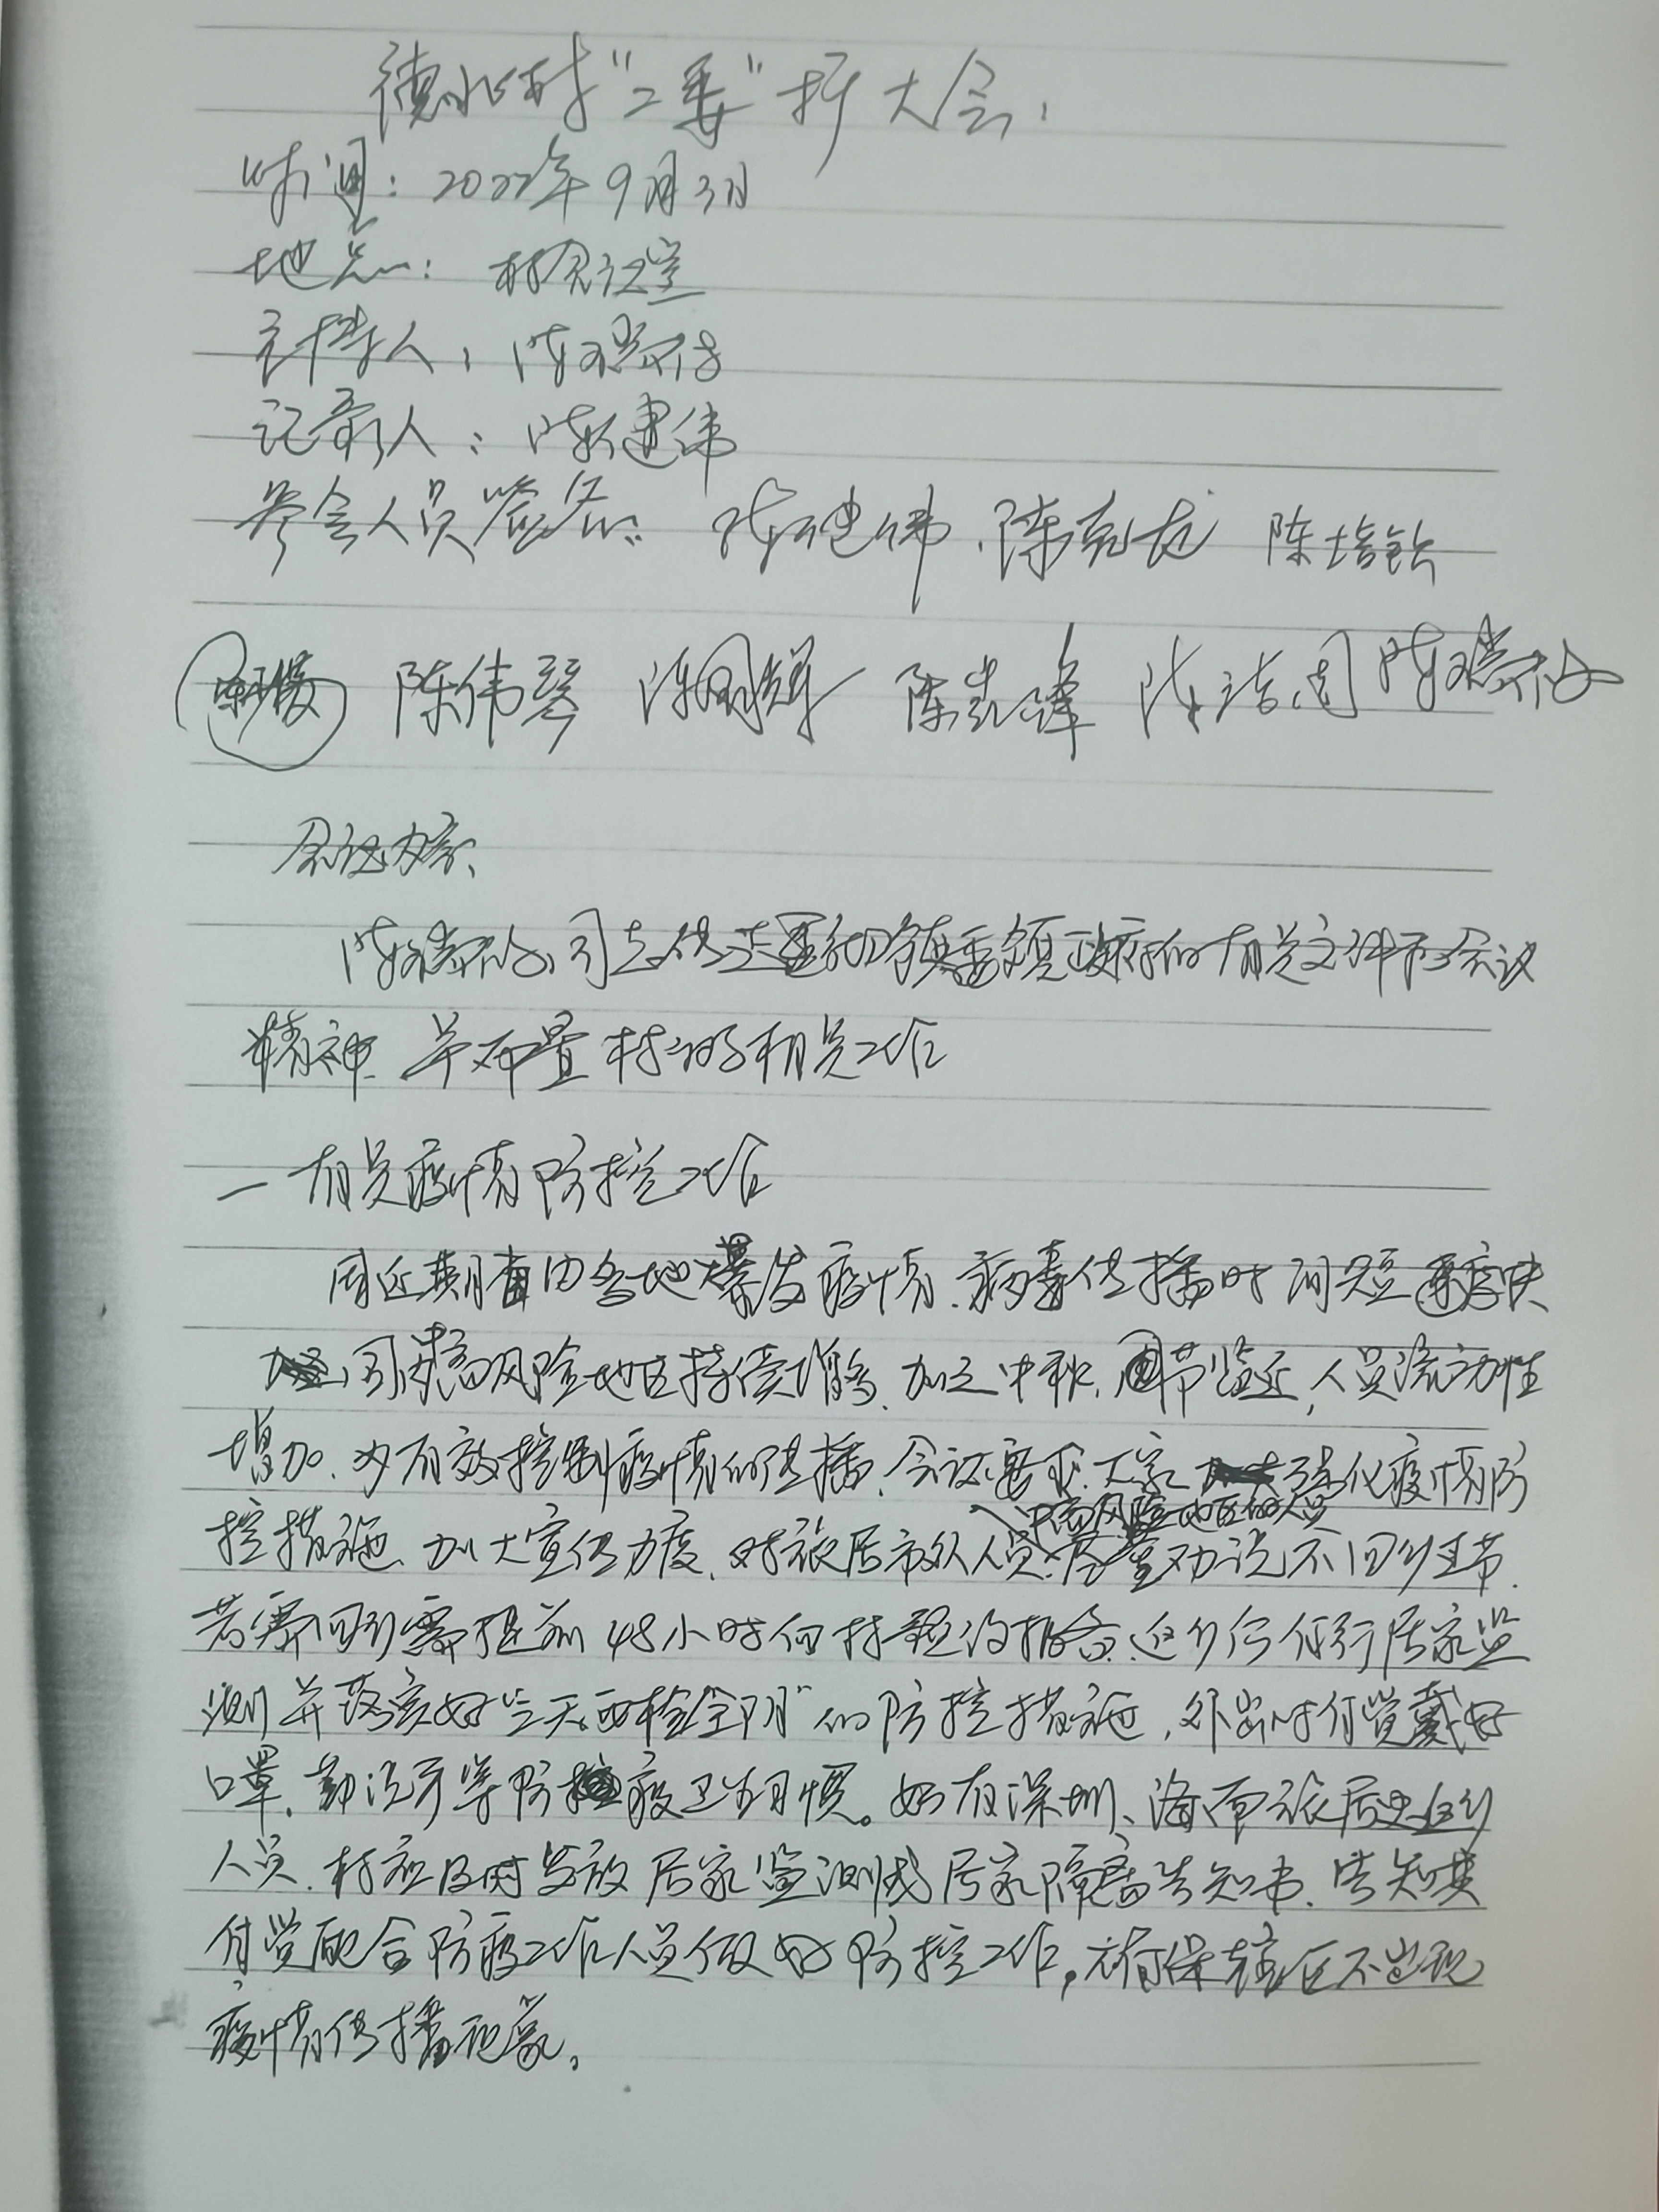 德水村"二委"扩大会:
时间:2022年9月3日
地点:村会议室
主持人:陈瑞
记录人:陈建伟
参会人员签名: 陈建伟、陈克龙 陈培钦
陈伟琴 陈锋 陈洁
会议内容、
同志传达镇委镇政府的有关文件和会议
精神.并布置村的相关工作
一 有关疫情防控工作
因近期国内各地爆发疫情.病毒传播时间短
引中高风险地区持续增多.加之中秋.国节临近,人员流动性
增加.为有效控制疫情的传播.会议要求.大家强化疫情防
中高风险地区的人员
控措施.加大宣传力度.对旅居市外人员.尽量劝说不回乡过节.
若需回乡需提前48小时向村报备.返乡后行居家监
测并落实好"三天两检全阴"的防控措施,外出时自觉戴好
口罩.勤洗手等防疫卫生习惯。如有深圳、海南旅居史返乡
人员.村应及时发放居家监测或居家隔离告知书.告知其
自觉配合防疫工作人员做好防控工作,确保辖区不出现
疫情传播现象。